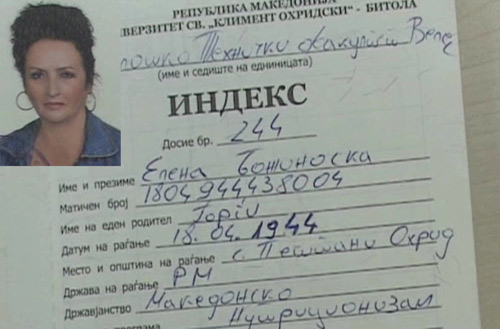 РЕПУБЛИКА МАКЕДОНИЈА
ВЕРЗИТЕТ СВ. „КЛИМЕНТ ОХРИДСКИ" - БИТОЛА
Технички факултет Веле
(име и седиште на единицата)
ИНДЕКС
Досие бр. 244
Име и презиме Елена Божиноска
Матичен број 1804944438004
Име на еден родител
Датум на раѓање 18.04.1944
Место и општина на раѓање с. Пештани Охрид
Држава на раѓање РМ
Државјанство Македонско
Нутриционизам